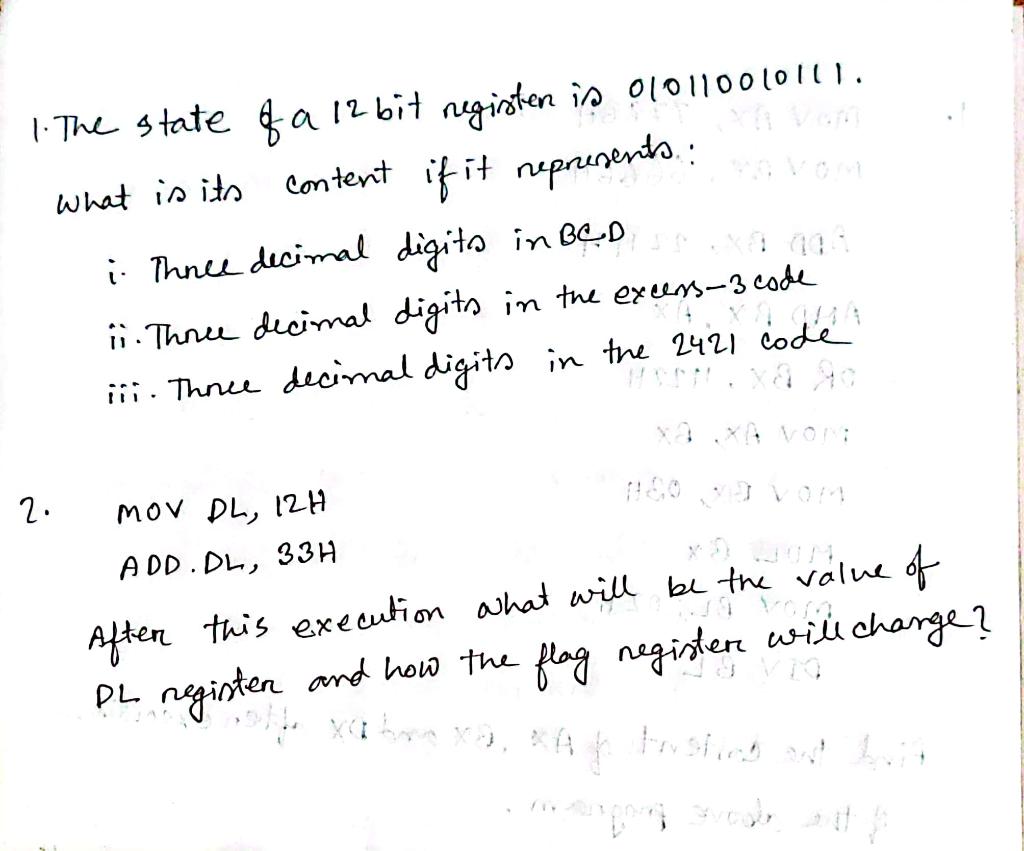 1. The state of a 12 bit register is 010110010111.
what is its content if it represents:
i. Three decimal digits in BCD
ii. Three decimal digits in the excess-3 code
iii. Three decimal digits in the 2421 code
2. MOV DL, 12H
ADD. DL, 33H
After this execution what will be the value of
DL register and how the flag register will change?